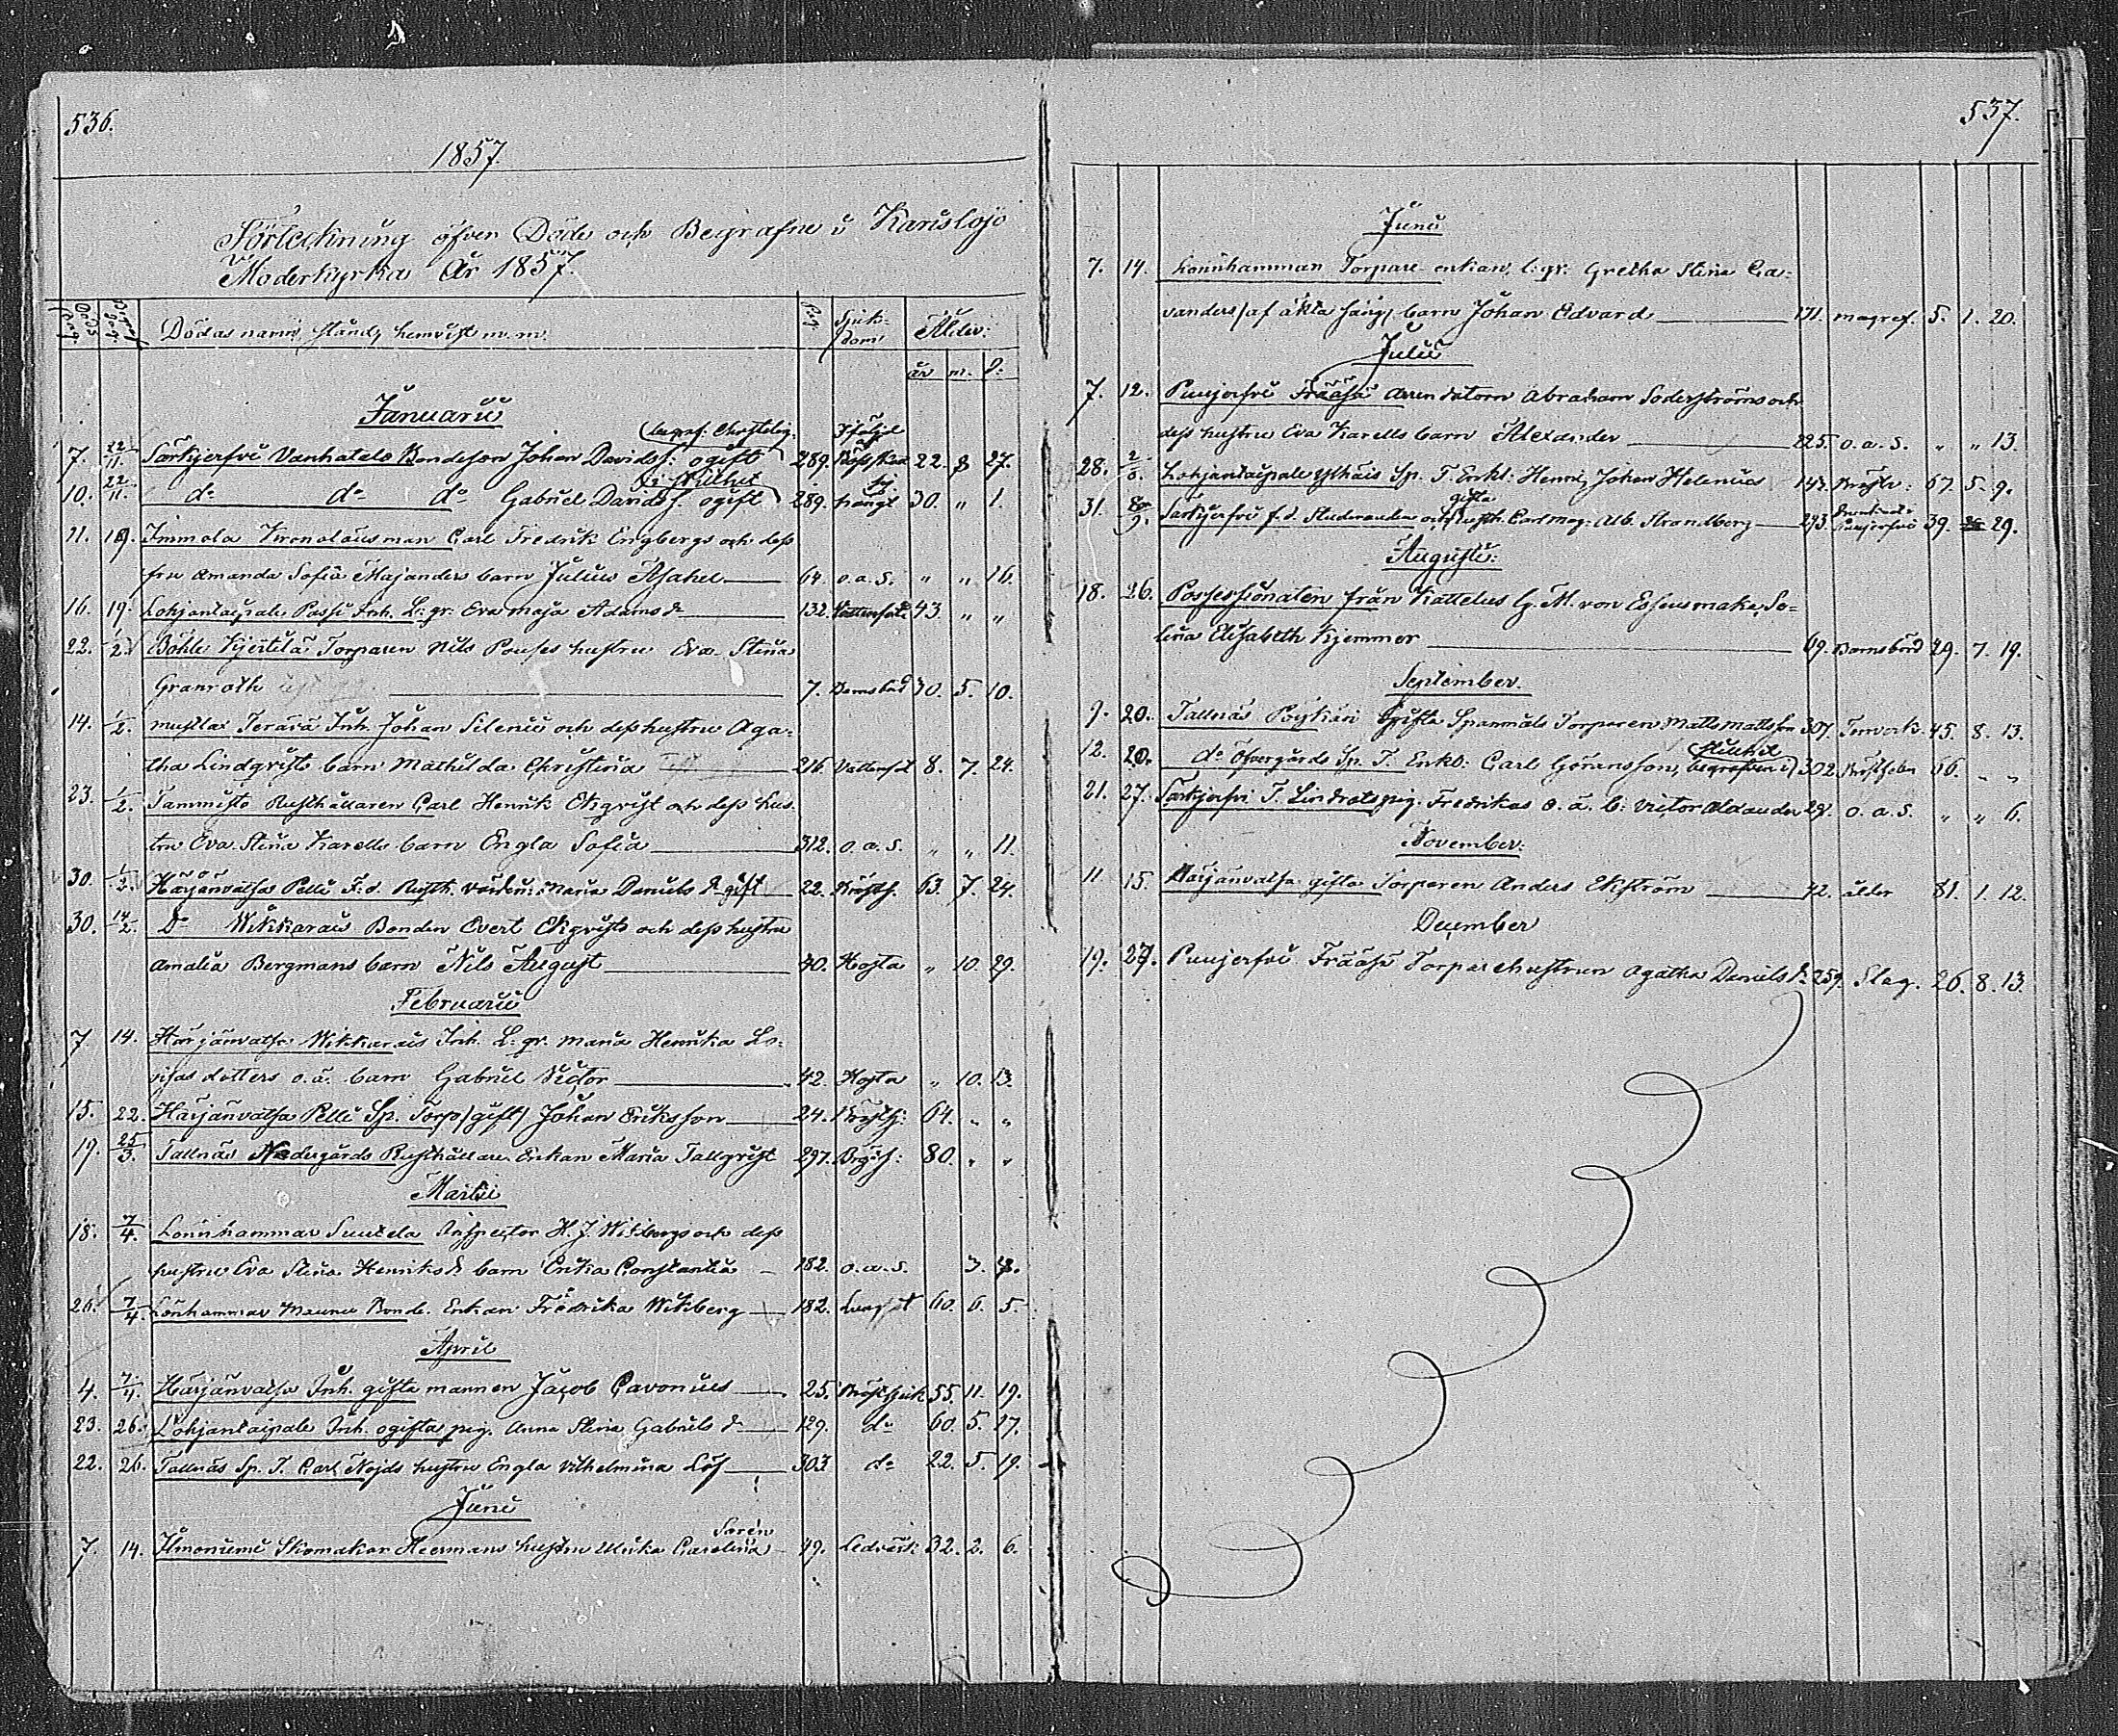 536.
1857.
Förteckning öfver Döde och Begrafne i Karislojo
Moderkyrka År 1857.
Dödas namn, stånd, hemvist m. m. Pag. Sjuk-dom Ålder:
år m. d.
Januarii
7. 22/11. Särkjerfvi Vanhatalo Bondeson Johan Davids S. ogift 289. 22. 8 27.
10. 22/11. do do do Gabriel Davids S. ogift 289. 30. " 1.
11. 19. Immola Kronolänsman Carl Fredrik Engbergs och dess
fru Amanda Sofia Majanders barn Julius Asahel 64. o.a.S. " " 16.
16. 19. Lohjantaipale Passi Inh. L: gr: Eva Maja Adams dr 132. Vattensot 43. " "
22. 1/2. Böhle Kjertilä Torparen Nils Pouses hustru Eva Stina
Granroth 7. Barnsbörd 30. 5. 10.
14. 1/2. Mustla Terävä Inh. Johan Silenii och dess hustru Aga-
tha Lindqvists barn Mathilda Christina 216. Vattensot 8. 7. 24.
23. 1/2. Tammisto Rusthållaren Carl Henrik Ekqvist och dess hus-
tru Eva Stina Karells barn Engla Sofia 312. o.a.S. " " 11.
30. 1/2. Härjänvatsa Pelli F.d. Rusth. Maria Daniels dr gift 22. Bröstsj. 63. 7. 24.
30. 14/2. Do Wikkarais Bonden Evert Ekqvists och dess hustru
Amalia Bergmans barn Nils August 40. Hosta " 10. 29.
Februarii
7. 14. Härjänvatsa Wikkarais Inh. L: gr. Maria Henrika Lo-
visas dotters o.ä. barn Gabriel Victor 42. Hosta " 10. 13.
15. 22. Härjänvatsa Pelli Sp. Torp. /gift/ Johan Eriksson 24. Bröstsj: 64. " "
19. 25/3. Tallnäs Nedergårds Rusthållare Enkan Maria Tallqvist 297. 80. " "
Martii
18. 7/4. Lönnhammar Suutela Inspector H. J. Wikbergs och dess
hustru Eva Stina Henriks dr barn Erika Constantia 182. o.a.S. 3.
26. 7/4. Lönhammar Maunu Bonde Enkan Fredrika Wikberg 182. Lungsot 60. 6. 5.
April
4. 7/4. Härjänvatsa Inh. gifta mannen Jacob Cavonius 25. Bröstsjuk 55. 11. 19.
23. 26. Lohjantaipale Inh. ogifta pig. Anna Stina Gabriels dr 129. do 60. 5. 17.
22. 26. Tallnäs Sp. T. Carl Nöjds hustru Engla Vilhelmina Löf 303 do 22. 5. 19.
Junii
Sorén
7. 14. Ilmoniemi Skomakar Heermans hustru Ulrika Carolina 49. Ledvärk 32. 2. 6.
537.
Junii
7. 14. Lönnhamman Torpare enkan, l: gr: Gretha Stina Ca-
vanders /af äkta säng/ barn Johan Edvard 171. magref. 5. 1. 20.
Julii
7. 12. Puujerfvi Frääsi Arrendatorn Abraham Söderströms och
dess hustru Eva Karells barn Alexander 225. o.a.S. " " 13.
28. 2/8. Lohjantaipale Ylhäis Sp. T. Enkl: Henric Johan Helenius 147. Bröstv: 67. 5. 9.
31. Särkjerfvi f.d. Studeranden och gifta Rusth. Carl Mag: Alb. Strandberg 293. Drunknade i Puujerfvi 39. 29.
Augusti:
18. 26. Possessionaten från Kattelus G. M. von Essens maka, So-
lina Elisabeth Kjemmer 69. Barnsbörd 29. 7. 19.
September.
9. 20. Tallnäs Pöykäri gifta Spannmåls Torparen Matts Mattsson 307. 45. 8. 13.
12. 20. do Öfvergårds Sp. T. Enkl: Carl Göransson, begrafven i 302. 66. " "
21. 27. Särkjerfvi T. Lindrots pig. Fredrikas o.ä. b: Victor Alexander 29. o.a.S. " " 6.
November.
11 15. Härjänvatsa gifta Torparen Anders Ekström 42. ålder 81. 1. 12.
December
19. 27. Puujerfvi Frääsi Torparehustrun Agatha Daniels dr 259. Slag. 26. 8. 13.